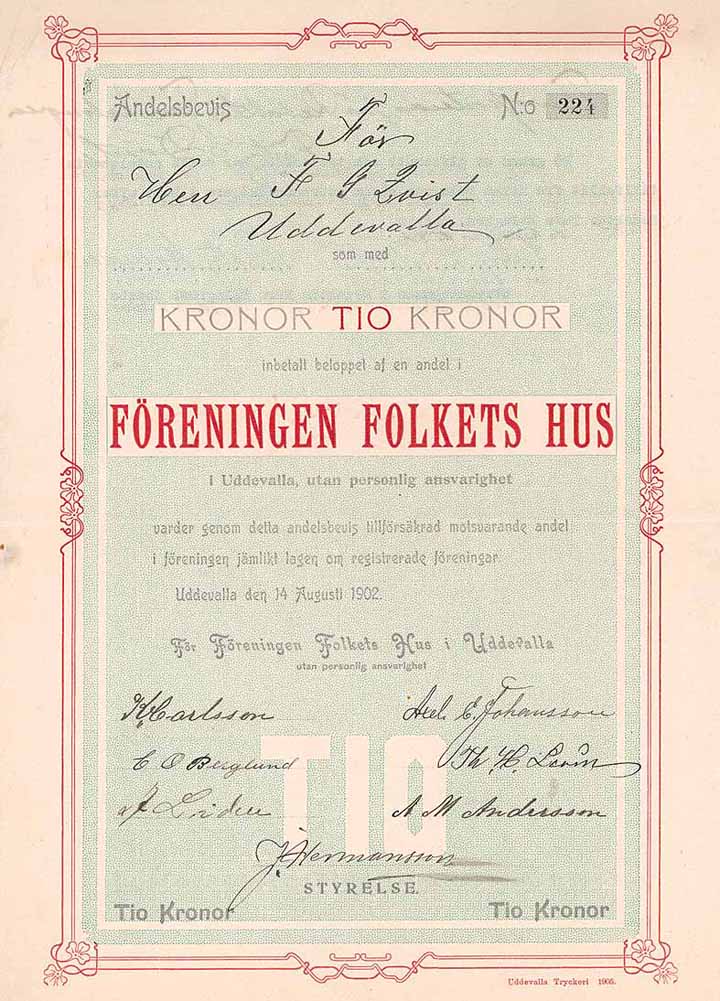 Andelsbevis N:o 224
För
Herr F G Qvist
Uddevalla
som med
KRONOR TIO KRONOR
inbetalt beloppet af en andel i
FÖRENINGEN FOLKETS HUS
i Uddevalla, utan personlig ansvarighet
varder genom detta andelsbevis tillförsäkrad motsvarande andel
i föreningen jämlikt lagen om registrerade föreningar.
Uddevalla den 14 Augusti 1902.
För Föreningen Folkets Hus i Uddevalla
utan personlig ansvarighet
K Carlsson Axel E. Johansson
C O Berglund Th. H.
Liden A M Andersson
TIO
J. Hermansson
STYRELSE.
Tio Kronor Tio Kronor
Uddevalla Tryckeri 1905.